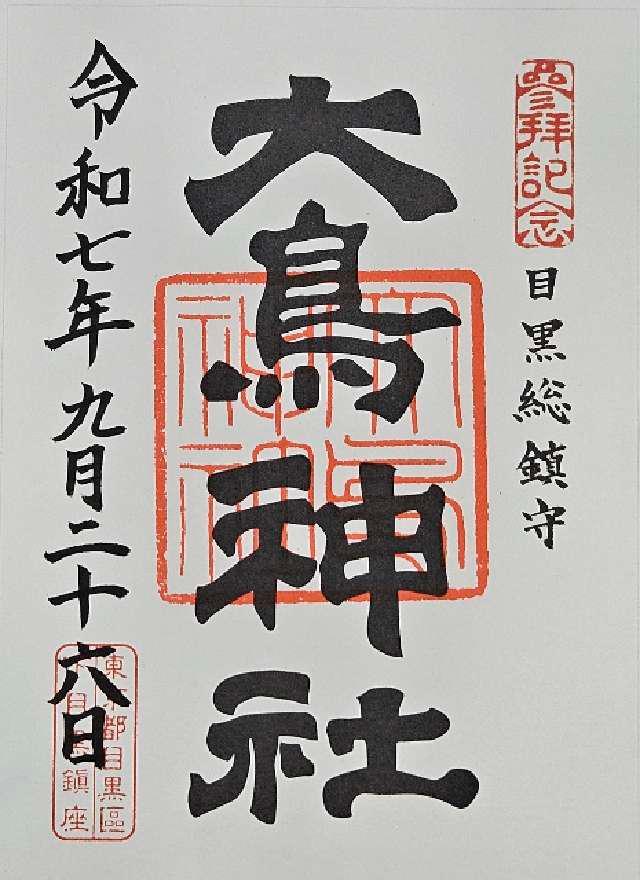 參拜記念
目黒総鎮守
大鳥神社
令和七年九月二十六日
東京都目黒區
下目黒鎮座